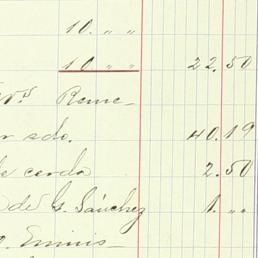 10. " "
10 " " 22.50
Reme-
r sdo. 40.19
de cerdo 2.50
de G. Sánchez 1. " "